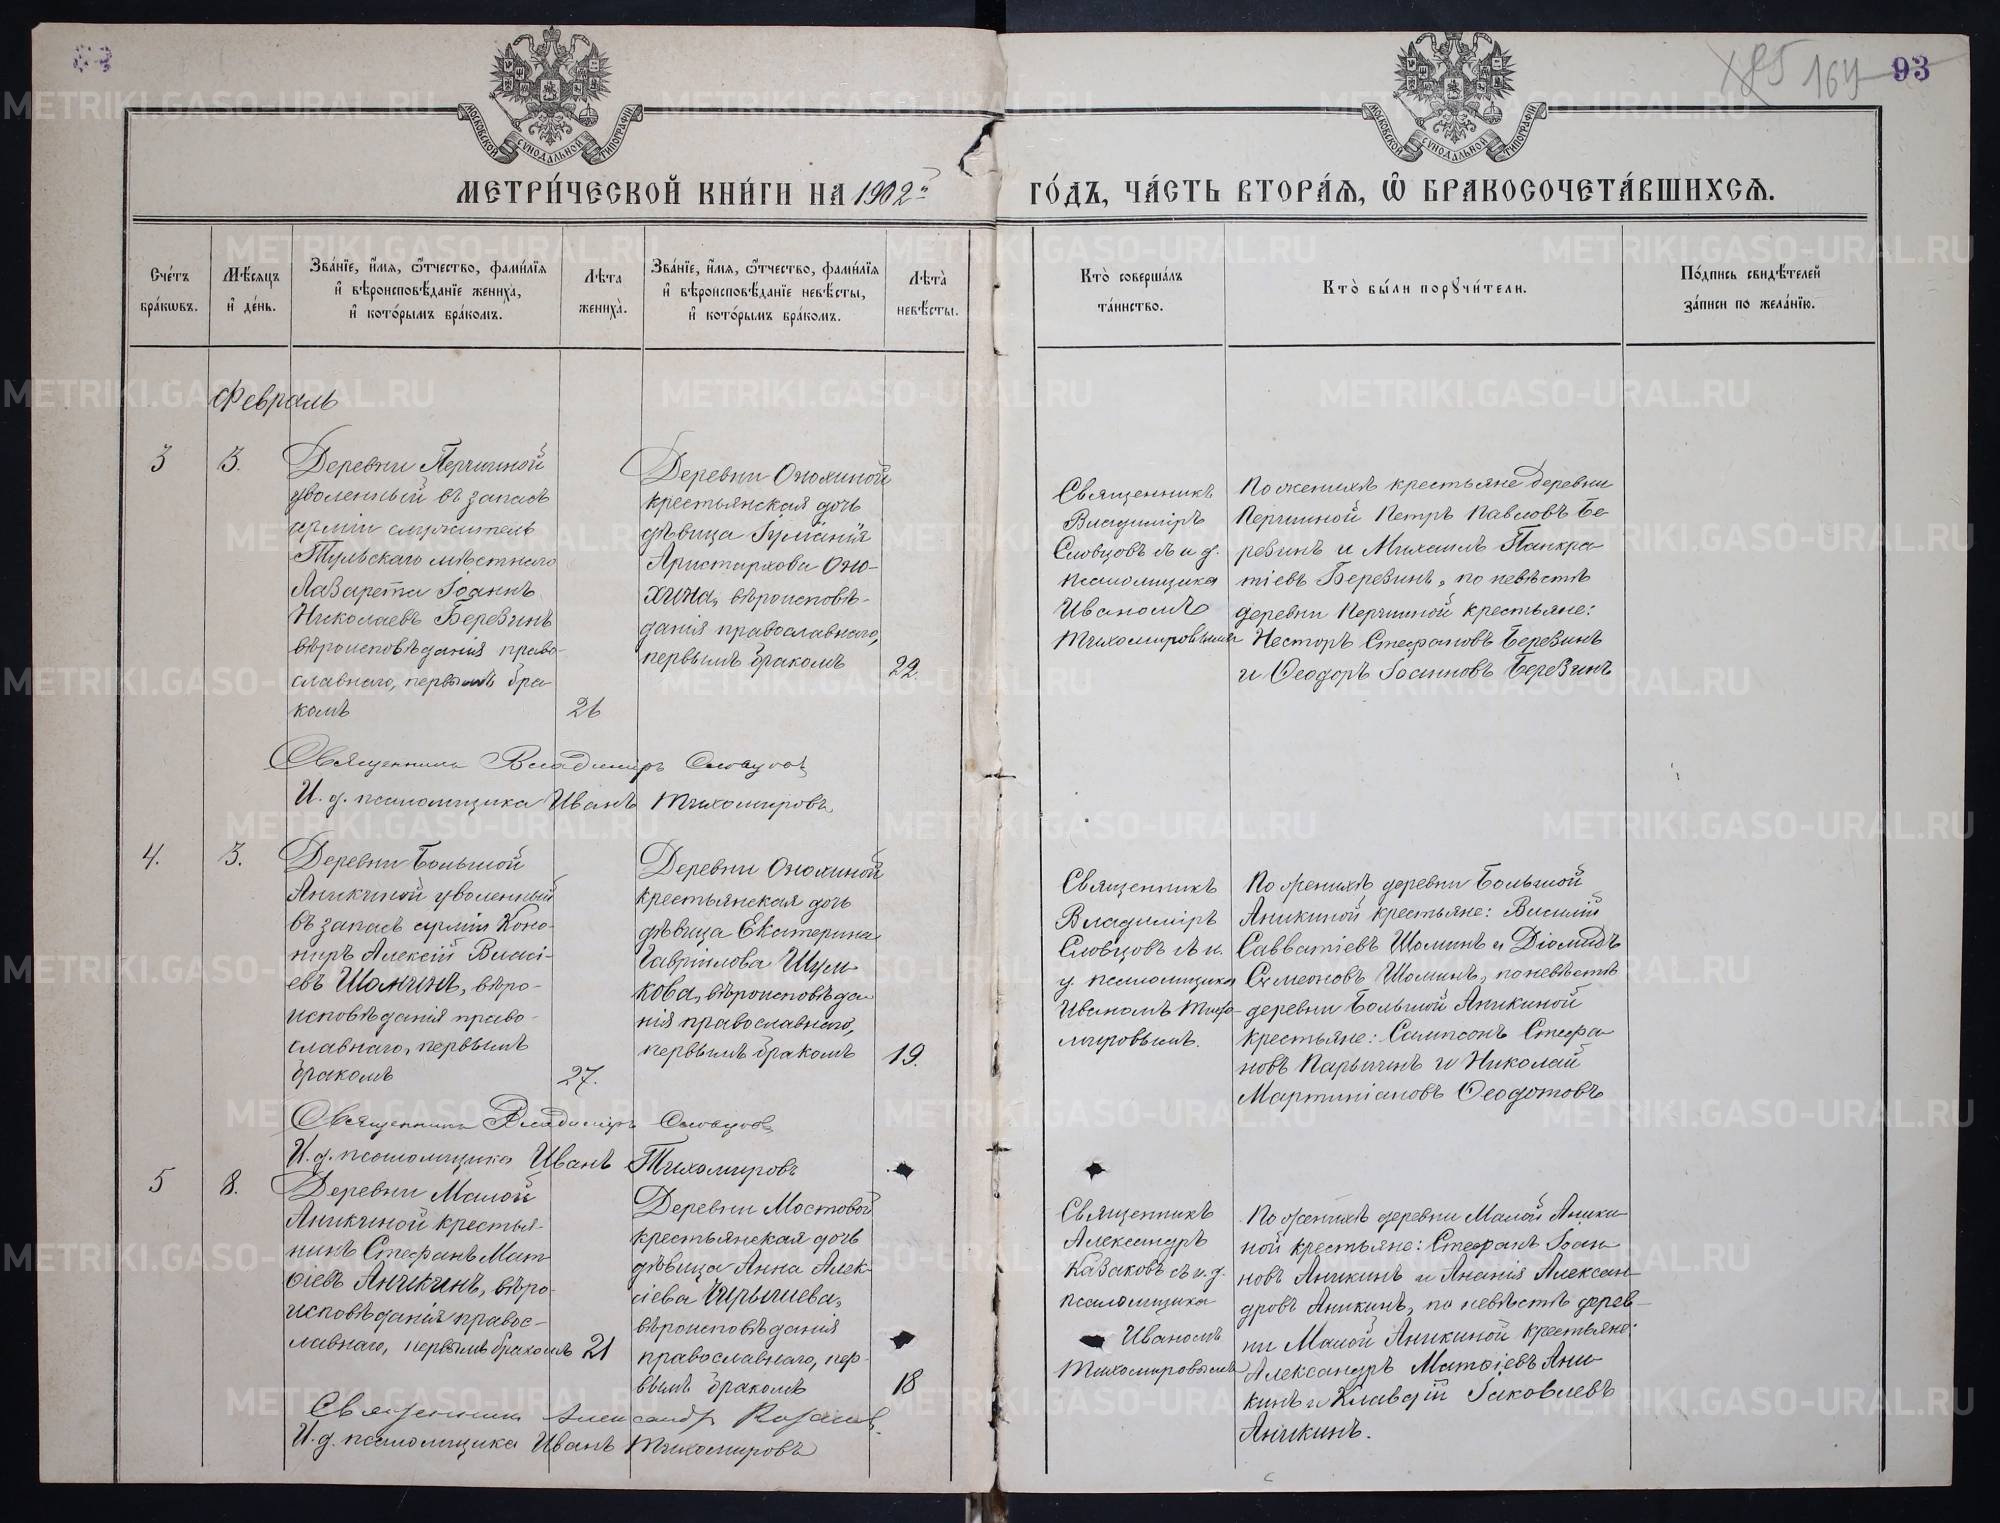 93
164
МОСКОВСКОЙ СѴНОДАЛЬНОЙ ТИПОГРАФІИ
МОСКОВСКОЙ СѴНОДАЛЬНОЙ ТИПОГРАФІИ
МЕТРИ́ЧЕСКОЙ КНИ́ГИ НА 1902й ГО́ДЪ, ЧА́СТЬ ВТОРА́Ѧ, Ѽ БРАКОСОЧЕТА́ВШИХСѦ.
Сче́тъ бра́кѡвъ.
Мѣ́сяцъ и҆ де́нь.
Зва́нїе, и҆́мѧ, ѻ҆́тчество, фами́лїѧ
и҆ вѣроисповѣ́данїе жениха̀,
и҆ кото́рымъ бра́комъ.
Лѣ́та жениха̀.
Зва́нїе, и҆́мѧ, ѻ҆́тчество, фами́лїѧ
и҆ вѣроисповѣ́данїе невѣ́сты,
и҆ кото́рымъ бра́комъ.
Лѣта̀ невѣ́сты.
Кто̀ соверша́лъ та́инство.
Кто̀ бы́ли порꙋчи́тели.
По́дпись свидѣ́телей за́писи по жела́нїю.
Февраль
3
3.
Деревни Першиной
уволенный въ запасъ
арміи служитель
Тульскаго мѣстнаго
Лазарета Іоаннъ
Николаевъ Березинъ
вѣроисповѣданія право-
славнаго, первымъ бра
комъ
26
Деревни Онохиной
крестьянская дочь
дѣвица Іуліанія
Аристархова Оно-
хина, вѣроисповѣ-
данія православнаго,
первымъ бракомъ
22.
Священникъ
Владиміръ
Словцовъ съ и. д.
псаломщика
Иваномъ
Тихомировымъ
По женихѣ крестьяне деревни
Першиной Петръ Павловъ Бе-
резинъ и Михаилъ Панкра
тіевъ Березинъ, по невѣстѣ
деревни Першиной крестьяне:
Несторъ Стефановъ Березинъ
и Ѳеодоръ Іоанновъ Березинъ
Священникъ Владиміръ Словцовъ
И. д. псаломщика Иванъ Тихомировъ
4.
3.
Деревни Большой
Аникиной уволенный
въ запасъ арміи Кано-
ниръ Алексій Власі-
евъ Шоминъ, вѣро-
исповѣданія право-
славнаго, первымъ
бракомъ
27.
Деревни Онохиной
крестьянская дочь
дѣвица Екатерина
Гавріилова Шум-
кова, вѣроисповѣда
нія православнаго,
первымъ бракомъ
19.
Священникъ
Владиміръ
Словцовъ съ и.
д. псаломщика
Иваномъ Тихо-
мировымъ.
По женихѣ деревни Большой
Аникиной крестьяне: Василій
Савватіевъ Шоминъ и Діомидъ
Симеоновъ Шоминъ, по невѣстѣ
деревни Большой Аникиной
крестьяне: Сампсонъ Стефа
новъ Паршинъ и Николай
Мартиніановъ Ѳеодотовъ
Священникъ Владиміръ Словцовъ
И. д. псаломщика Иванъ Тихомировъ
5
8.
Деревни Малой
Аникиной крестья-
нинъ Стефанъ Мат
ѳіевъ Аникинъ, вѣро-
исповѣданія правос-
лавнаго, первымъ бракомъ 21
Деревни Мостовой
крестьянская дочь
дѣвица Анна Алек-
сіева Чирышева,
вѣроисповѣданія
православнаго, пер-
вымъ бракомъ
18
Священникъ
Александръ
Казаковъ съ и. д.
псаломщика
Иваномъ
Тихомировымъ
По женихѣ деревни Малой Аники
ной крестьяне: Стефанъ Іоан
новъ Аникинъ и Ананія Алексан-
дровъ Аникинъ, по невѣстѣ дерев-
ни Малой Аникиной крестьяне:
Александръ Матѳіевъ Ани
кинъ и Клавдій Іаковлевъ
Аникинъ.
Священникъ Александръ Казаковъ.
И. д. псаломщика Иванъ Тихомировъ
METRIKI.GASO-URAL.RU